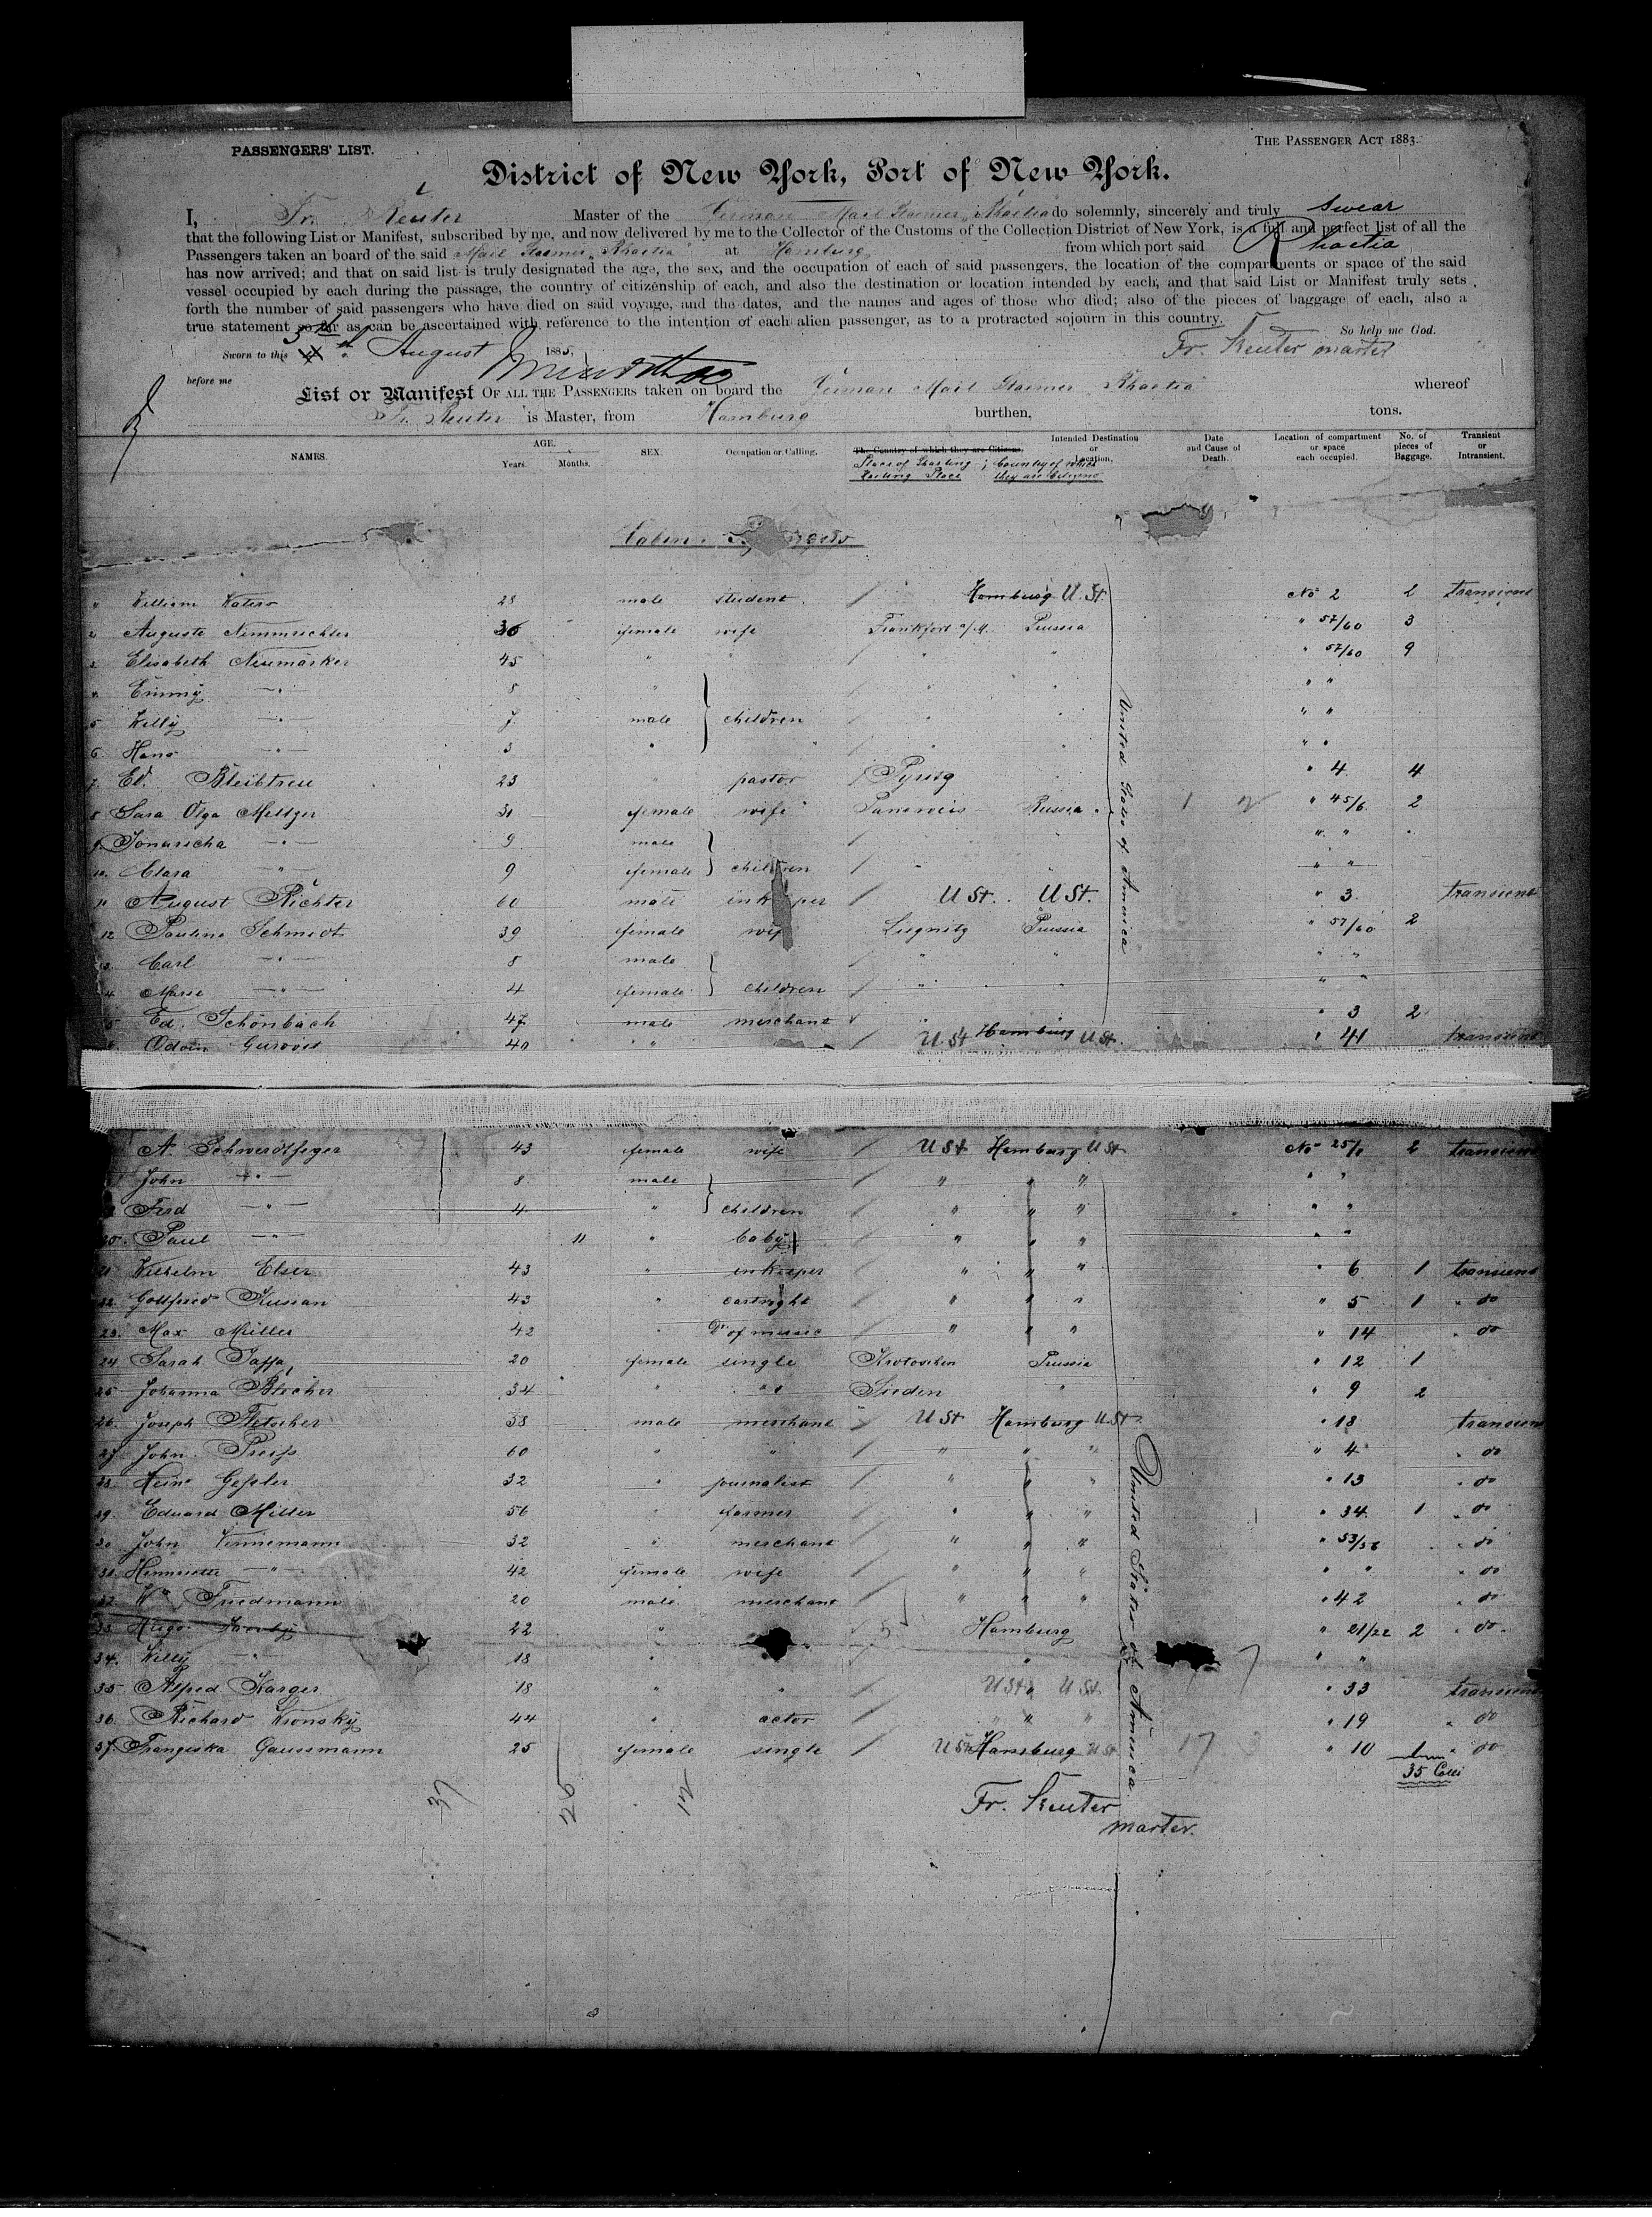 PASSENGERS' LIST.
THE PASSENGER ACT 1883.
District of New York, Port of New York.
I, Fr. Reuter Master of the German Mail Steamer "Rhaetia" do solemnly, sincerely and truly swear
that the following List or Manifest, subscribed by me, and now delivered by me to the Collector of the Customs of the Collection District of New York, is a full and perfect list of all the
Passengers taken an board of the said Mail Steamer "Rhaetia" at Hamburg from which port said Rhaetia
has now arrived; and that on said list is truly designated the age, the sex, and the occupation of each of said passengers, the location of the compartments or space of the said
vessel occupied by each during the passage, the country of citizenship of each, and also the destination or location intended by each, and that said List or Manifest truly sets
forth the number of said passengers who have died on said voyage, and the dates, and the names and ages of those who died; also of the pieces of baggage of each, also a
true statement so far as can be ascertained with reference to the intention of each alien passenger, as to a protracted sojourn in this country.
So help me God.
Sworn to this 5th August 1885, Fr. Reuter master
before me
List or Manifest OF ALL THE PASSENGERS taken on board the German Mail Steamer Rhaetia whereof
Fr. Reuter is Master, from Hamburg burthen, tons.
NAMES. AGE. Years. Months. SEX. Occupation or Calling. The Country of which they are Citizens. Intended Destination or Location. Date and Cause of Death. Location of compartment or space each occupied. No. of pieces of Baggage. Transient or Intransient.
Place of Starting; Country of which
Starting Place they are Citizens
Cabin
William 28 male student Hamburg U. St. No 2 2 transient
2. Auguste Nimmrichter 36 female wife Frankfort a/M. Prussia " 57/60 3
3. Elisabeth Neumärker 45 " " " " " 57/60 9
4. Emmy —"— 8 " " " " "
5 Willy —"— 7 male children " " " "
6. Hans —"— 3 " " " " "
7. Ed. Bleibtreu 23 " pastor Pyritz " " 4 4
8 Sara Olga Meltzer 31 female wife Russia " 45/6 2
9. —"— 9 male " "
10. Clara —"— 9 female children " " " "
11 August Richter 60 male U St. U St. " 3 transient
12 Pauline Schmidt 39 female wife Liegnitz Prussia " 57/60 2
3. Carl —"— 8 male " " " "
4 Marie —"— 4 female children " " "
5 Ed. Schönbach 47 male merchant " " 3 2
Odoin 40 " " U. St Hamburg U St. " 41 transient
United States of America
A. Schwerdtfeger 43 female wife U St Hamburg U St No 25/ 2 transient
John —"— 8 male " " " " "
Ferd —"— 4 " children " " " " "
20. Paul —"— 11 " baby " " " " "
21 Wilhelm Elser 43 " inkeeper " " " " 6 1 transient
22. Gottfried Kusian 43 " cartright " " " " 5 1 " do
23. Max Müller 42 " Dr of music " " " " 14 " do
24 Sarah Jaffa 20 female single Krotoschin Prussia " 12 1
25 Johanna Blocher 34 " " " " 9 2
26. Joseph Fletscher 38 male merchant U St Hamburg U St " 18 transient
27 John Preiss 60 " " " " " " 4 " do
28. Gessler 32 " journalist " " " " 13 " do
29. Eduard Miller 56 " farmer " " " " 34 1 " do
30 John Vennemann 32 " merchant " " " " 53/56 " do
31. Henriette —"— 42 female wife " " " " " " do
32. Wm Friedmann 20 male merchant " " " " 42 " do
33. Hugo 22 " Hamburg " 21/22 2 " do
34. Willy —"— 18 " " " "
35 Alfred Karger 18 " " U St " U St " 33 transient
36. Richard Wronsky 44 " actor " " " " 19 " do
37. Franziska Gaussmann 25 female single U St Hamburg U St 17 " 10 1 " do
35 Colli
United States of America
Fr. Reuter
master.